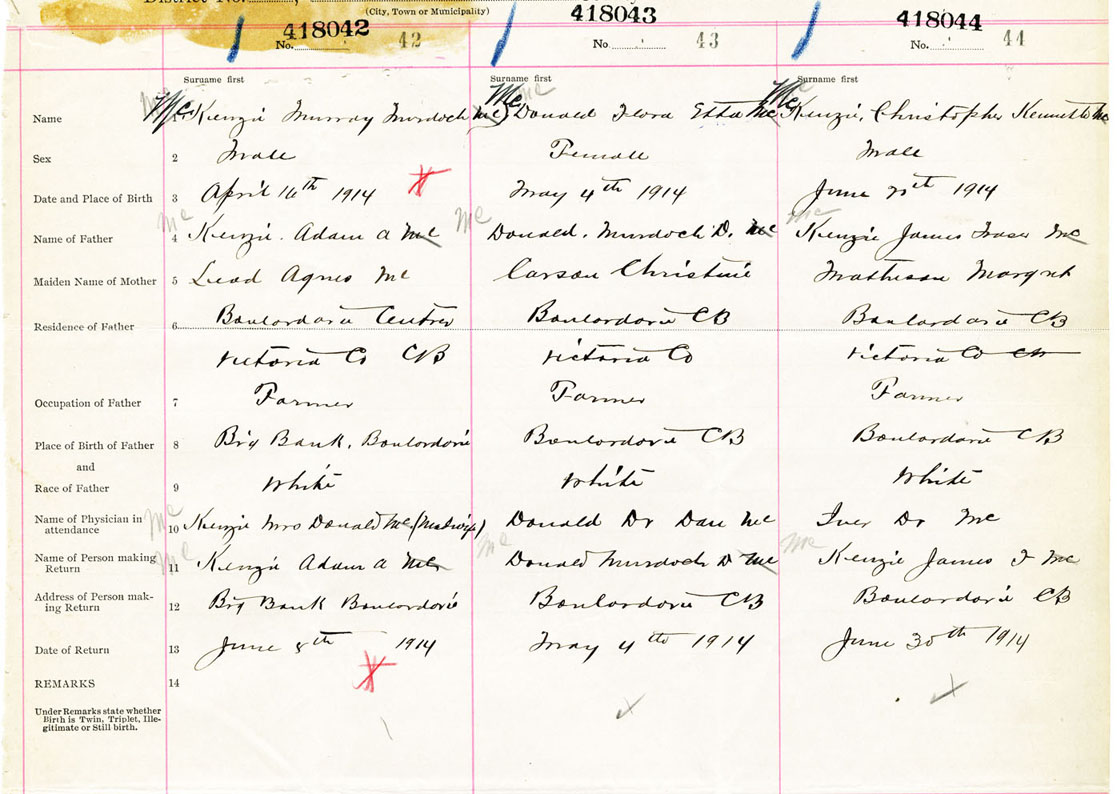 District No.
(City, Town or Municipality)
418042 418043 418044
No. 42 No. 43 No. 44
Surname first Surname first Surname first
Mc Mc Mc
Name 1 Mc Kenzie Murray Murdoch Mc Mc Donald Flora Etta Mc Mc Kenzie, Christopher Kenneth Mc
Sex 2 Male Female Male
Date and Place of Birth 3 April 16th 1914 May 4th 1914 June 1914
Mc Mc Mc
Name of Father 4 Kenzie. Adam A Mc Donald, Murdoch D. Mc Kenzie James Fraser Mc
Maiden Name of Mother 5 Agnes Mc Carson Christine Matheson Margret
Residence of Father 6 Boulardarie Centre Boulardarie CB Boulardarie CB
Victoria Co CB Victoria Co Victoria Co CB
Occupation of Father 7 Farmer Farmer Farmer
Place of Birth of Father 8 Big Bank, Boulardarie Boulardarie CB Boulardarie CB
and
Race of Father 9 White White White
Name of Physician in attendance 10 Mc Kenzie Mrs Donald Mc (Midwife) Donald Dr Dan Mc Iver Dr Mc
Name of Person making Return 11 Mc Kenzie Adam A Mc Mc Donald Murdoch D Mc Mc Kenzie James F Mc
Address of Person making Return 12 Big Bank Boulardarie Boulardarie CB Boulardarie CB
Date of Return 13 June 8th 1914 May 4th 1914 June 30th 1914
REMARKS 14
Under Remarks state whether
Birth is Twin, Triplet, Ille-
gitimate or Still birth.